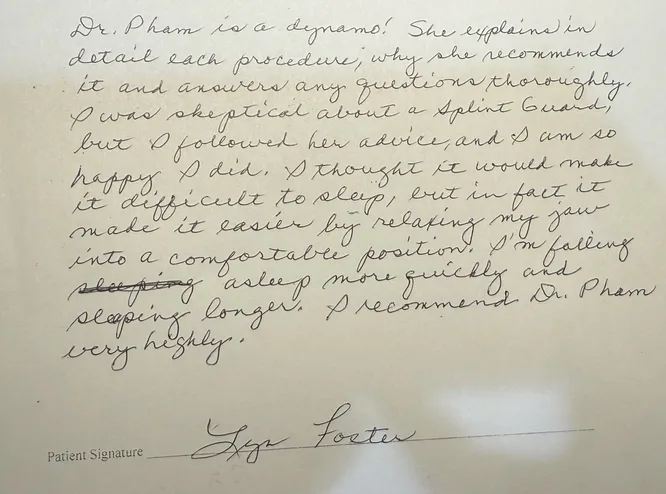 Dr. Pham is a dynamo! She explains in
detail each procedure, why she recommends
it and answers any questions thoroughly.
I was skeptical about a Splint Guard,
but I followed her advice, and I am so
happy I did. I thought it would make
it difficult to sleep, but in fact it
made it easier by relaxing my jaw
into a comfortable position. I'm falling
sleeping asleep more quickly and
sleeping longer. I recommend Dr. Pham
very highly.
Patient Signature Lyn Foster